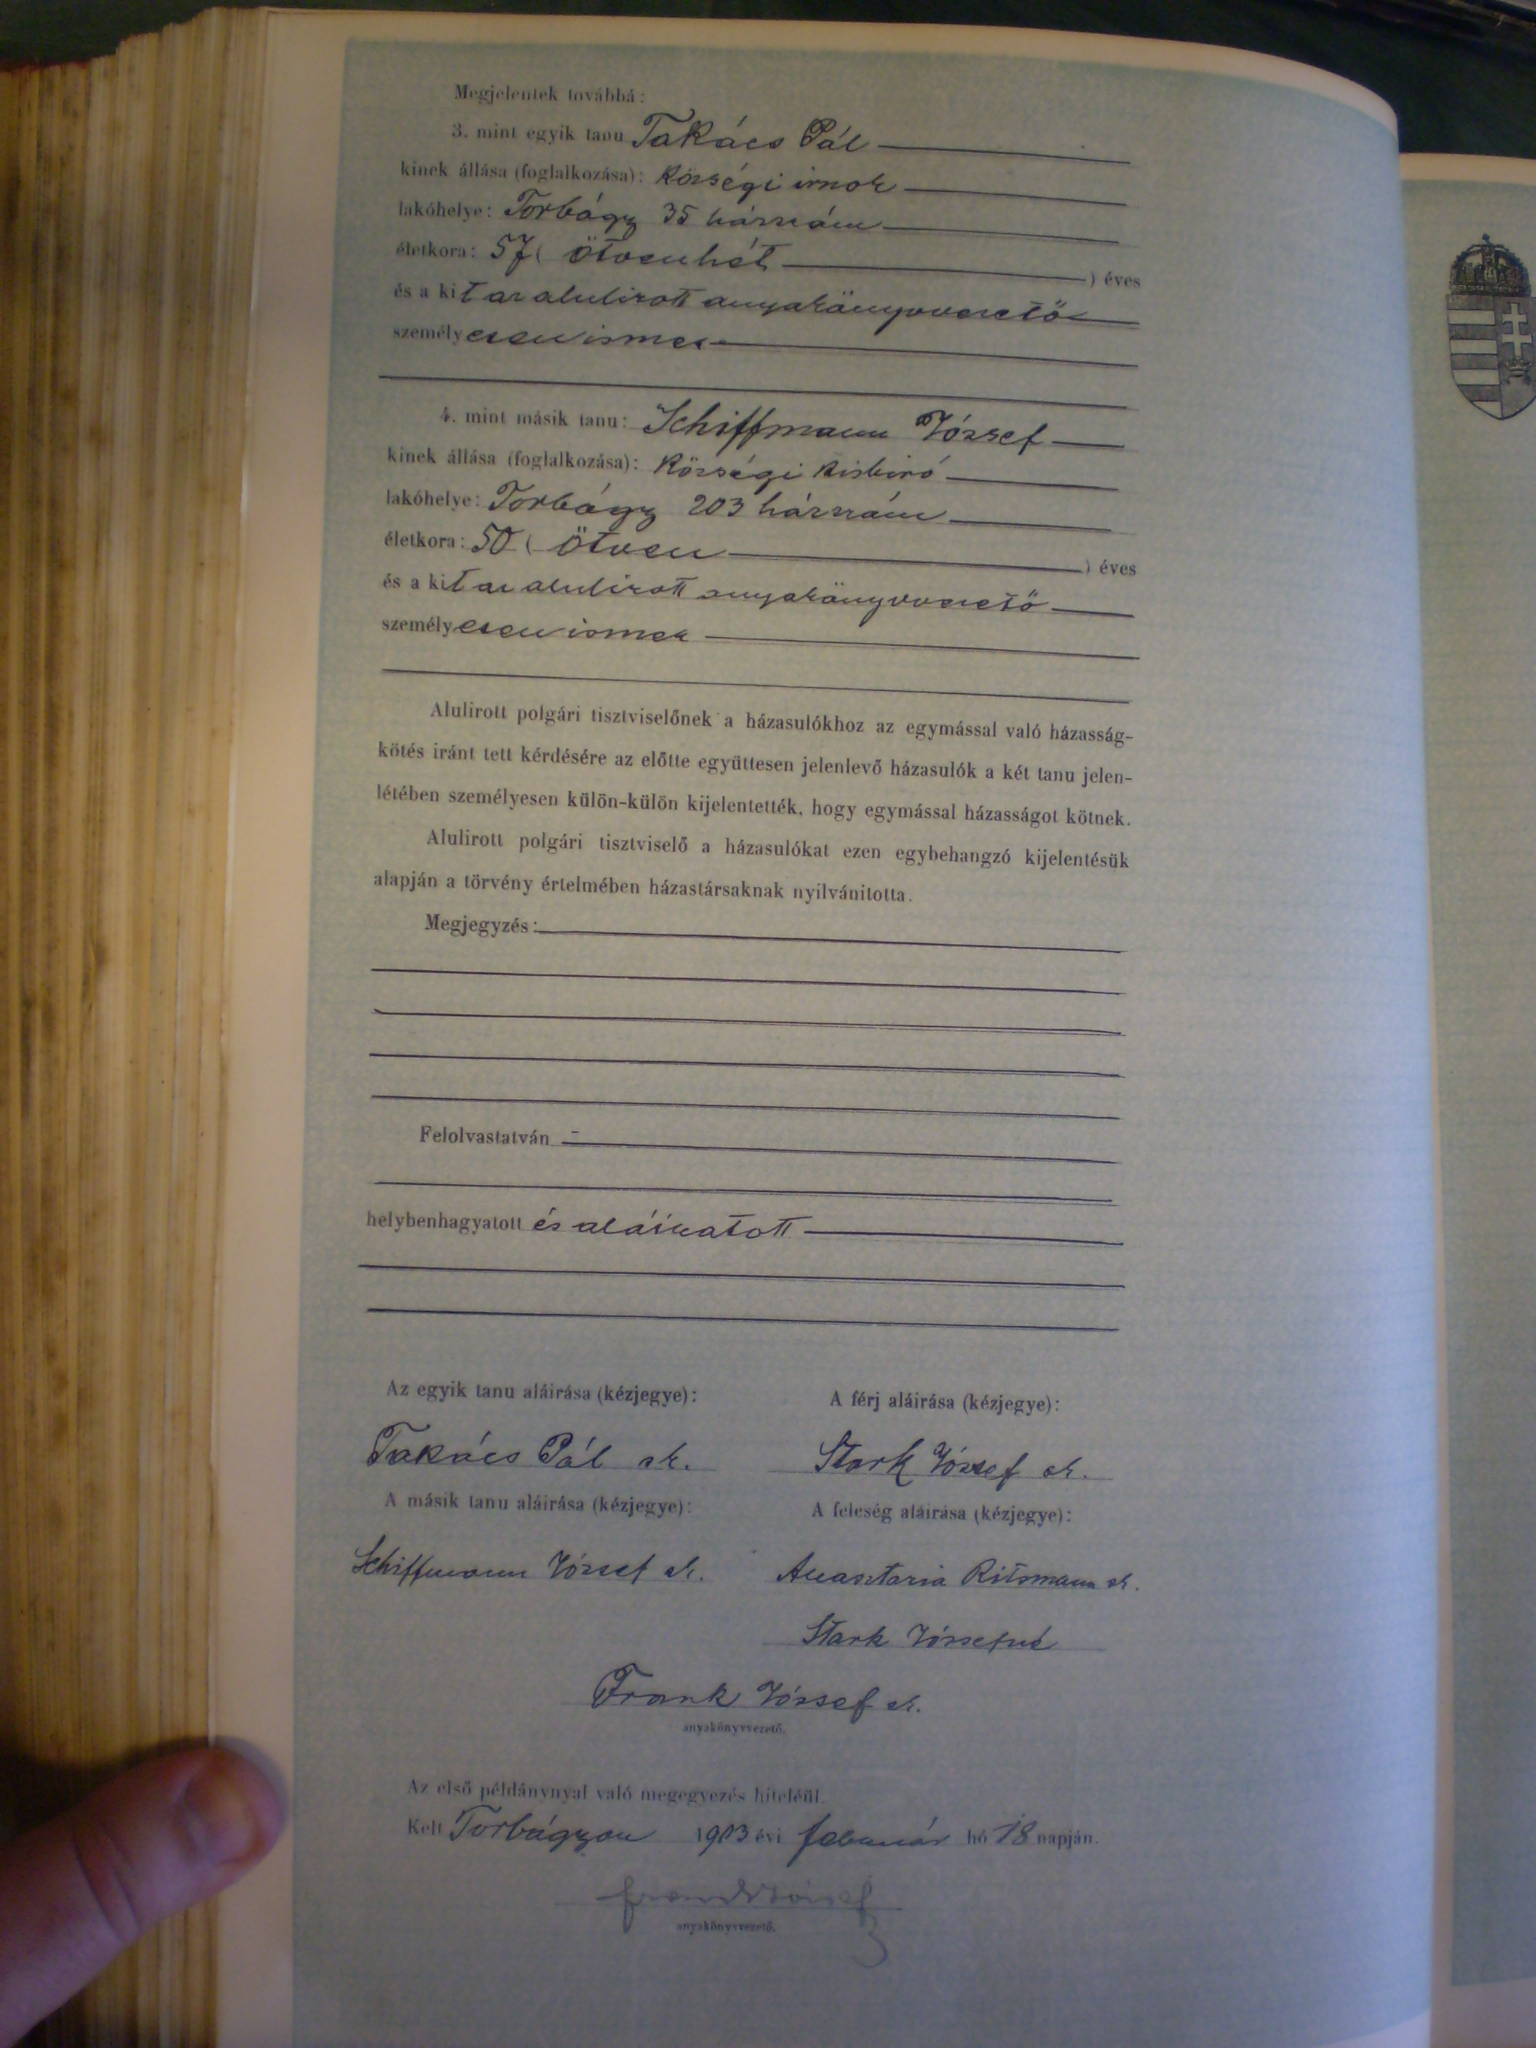 Megjelentek továbbá:
3. mint egyik tanu Takács Pál
kinek állása (foglalkozása): községi irnok
lakóhelye: Torbágy 35 házszám
életkora: 57 ( ötvenhét ) éves
és a kit az alulirott anyakönyvvezető
személyesen ismer
4. mint másik tanu: Schiffmann József
kinek állása (foglalkozása): községi kisbiró
lakóhelye: Torbágy 203 házszám
életkora: 50 ( ötven ) éves
és a kit az alulirott anyakönyvvezető
személyesen ismer
Alulirott polgári tisztviselőnek a házasulókhoz az egymással való házasság-
kötés iránt tett kérdésére az előtte együttesen jelenlevő házasulók a két tanu jelen-
létében személyesen külön-külön kijelentették, hogy egymással házasságot kötnek.
Alulirott polgári tisztviselő a házasulókat ezen egybehangzó kijelentésük
alapján a törvény értelmében házastársaknak nyilvánitotta.
Megjegyzés:
Felolvastatván
helybenhagyatott és aláiratott
Az egyik tanu aláirása (kézjegye):
A férj aláirása (kézjegye):
Takács Pál sk.
Stark József sk.
A másik tanu aláirása (kézjegye):
A feleség aláirása (kézjegye):
Schiffmann József sk.
Anasztazia Ritsmann sk.
Stark Józsefné
Frank József sk.
anyakönyvvezető.
Az első példánynyal való megegyezés hiteléül.
Kelt Torbágyon 1903 évi február hó 18 napján.
Frank József
anyakönyvvezető.